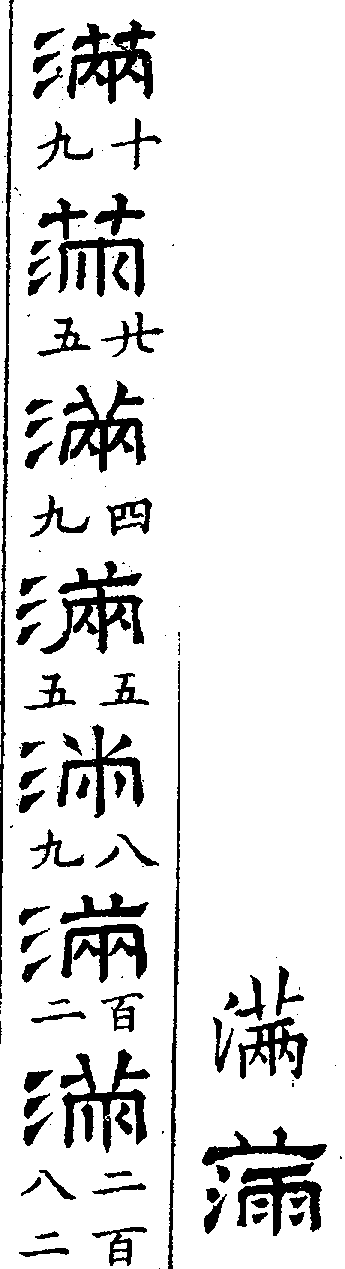 滿滿
滿十九滿廿五滿四九滿五五滿八九滿百二滿二百八二